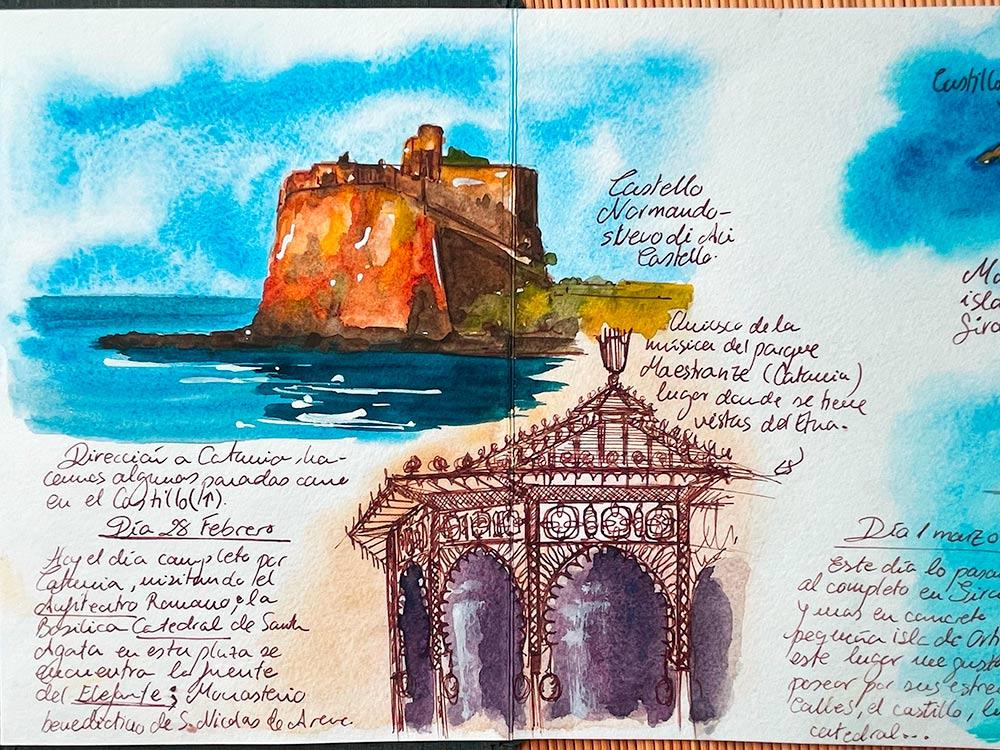 Castello
Normando-
svevo di Aci
Castello.
Quiosco de la
música del parque
Maestranze (Catania)
lugar donde se tiene
vistas del Etna.
Dirección a Catania, ha-
cemos algunas paradas como
en el Castillo(↑).
Día 28 Febrero
Hoy el día completo por
Catania, visitando el
Anfiteatro Romano, la
Basílica Catedral de Santa
Agata en esta plaza se
encuentra la fuente
del Elefante; Monasterio
benedictino de S. Nicolas
Castillo
isla
Sira
Día 1 marzo
Este día lo pasa
al completo en Sira
y mas en concreto
pequeña isla de Orti
este lugar me gust
pasear por sus estre
calles, el castillo, la
catedral...